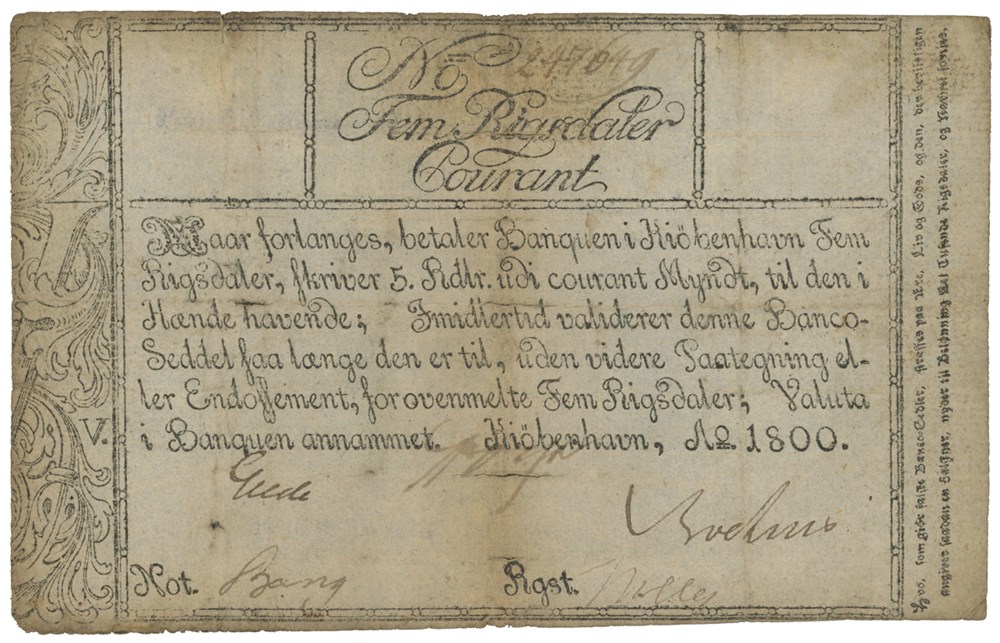 No 247649
Fem Rigsdaler
Courant
Naar forlanges, betaler Banquen i Kiöbenhavn Fem
Rigsdaler, skriver 5. Rdlr. udi courant Myndt, til den i
Hænde havende; Imidlertid validerer denne Banco-
Seddel saa længe den er til, uden videre Paategning el-
ler Endossement, for ovenmelte Fem Rigsdaler; Valuta
i Banquen annammet. Kiöbenhavn, Ao 1800.
V.
Gede
Not. Bang Rgst.
Hvo, som giör falske Banco-Sedler, straffes paa Ære, Liv og Gods, og den, der beviisligen
angiver saadan en Falskner, nyder til Belönning Eet Tusende Rigsdaler, og Navnet forties.